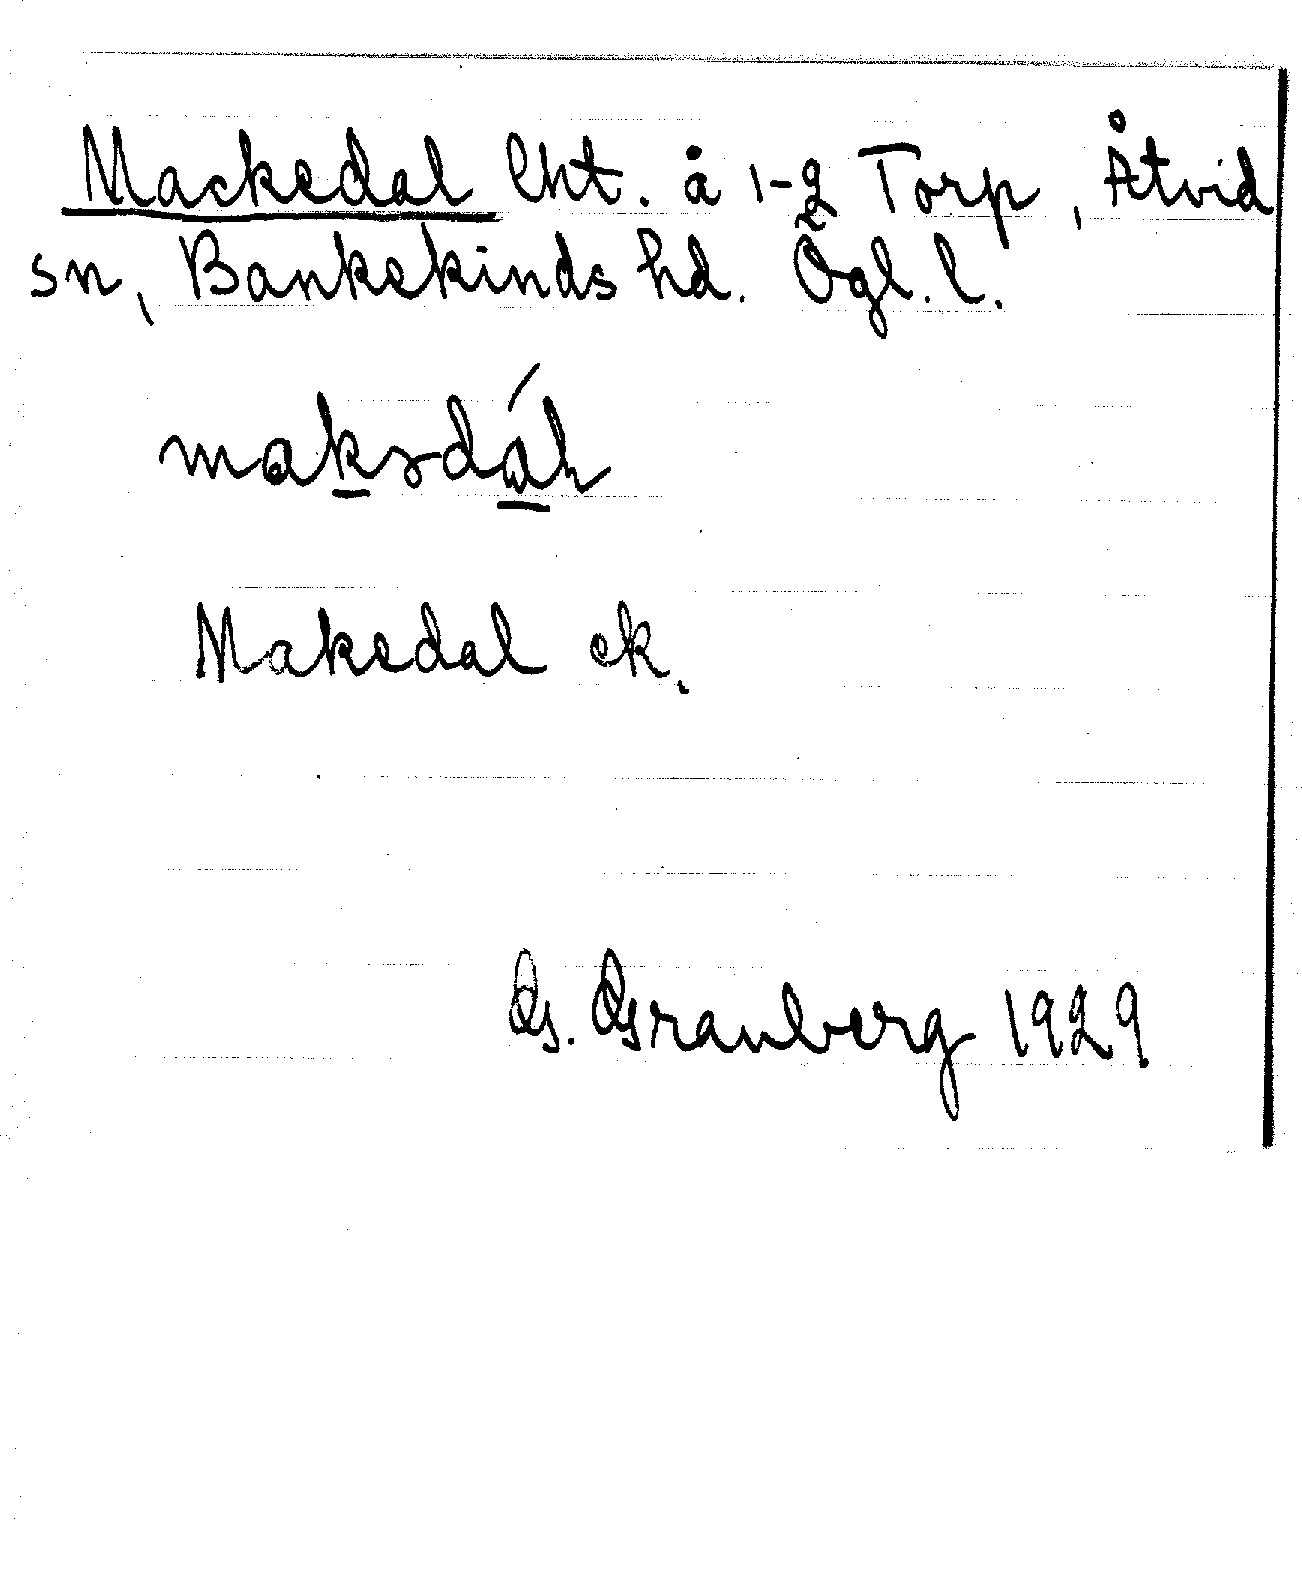 Macksdal lht. å 1-2 Torp, Åtvid
sn, Bankekinds hd. Ögl. l.
Maksdal ek.
G. Granberg 1929